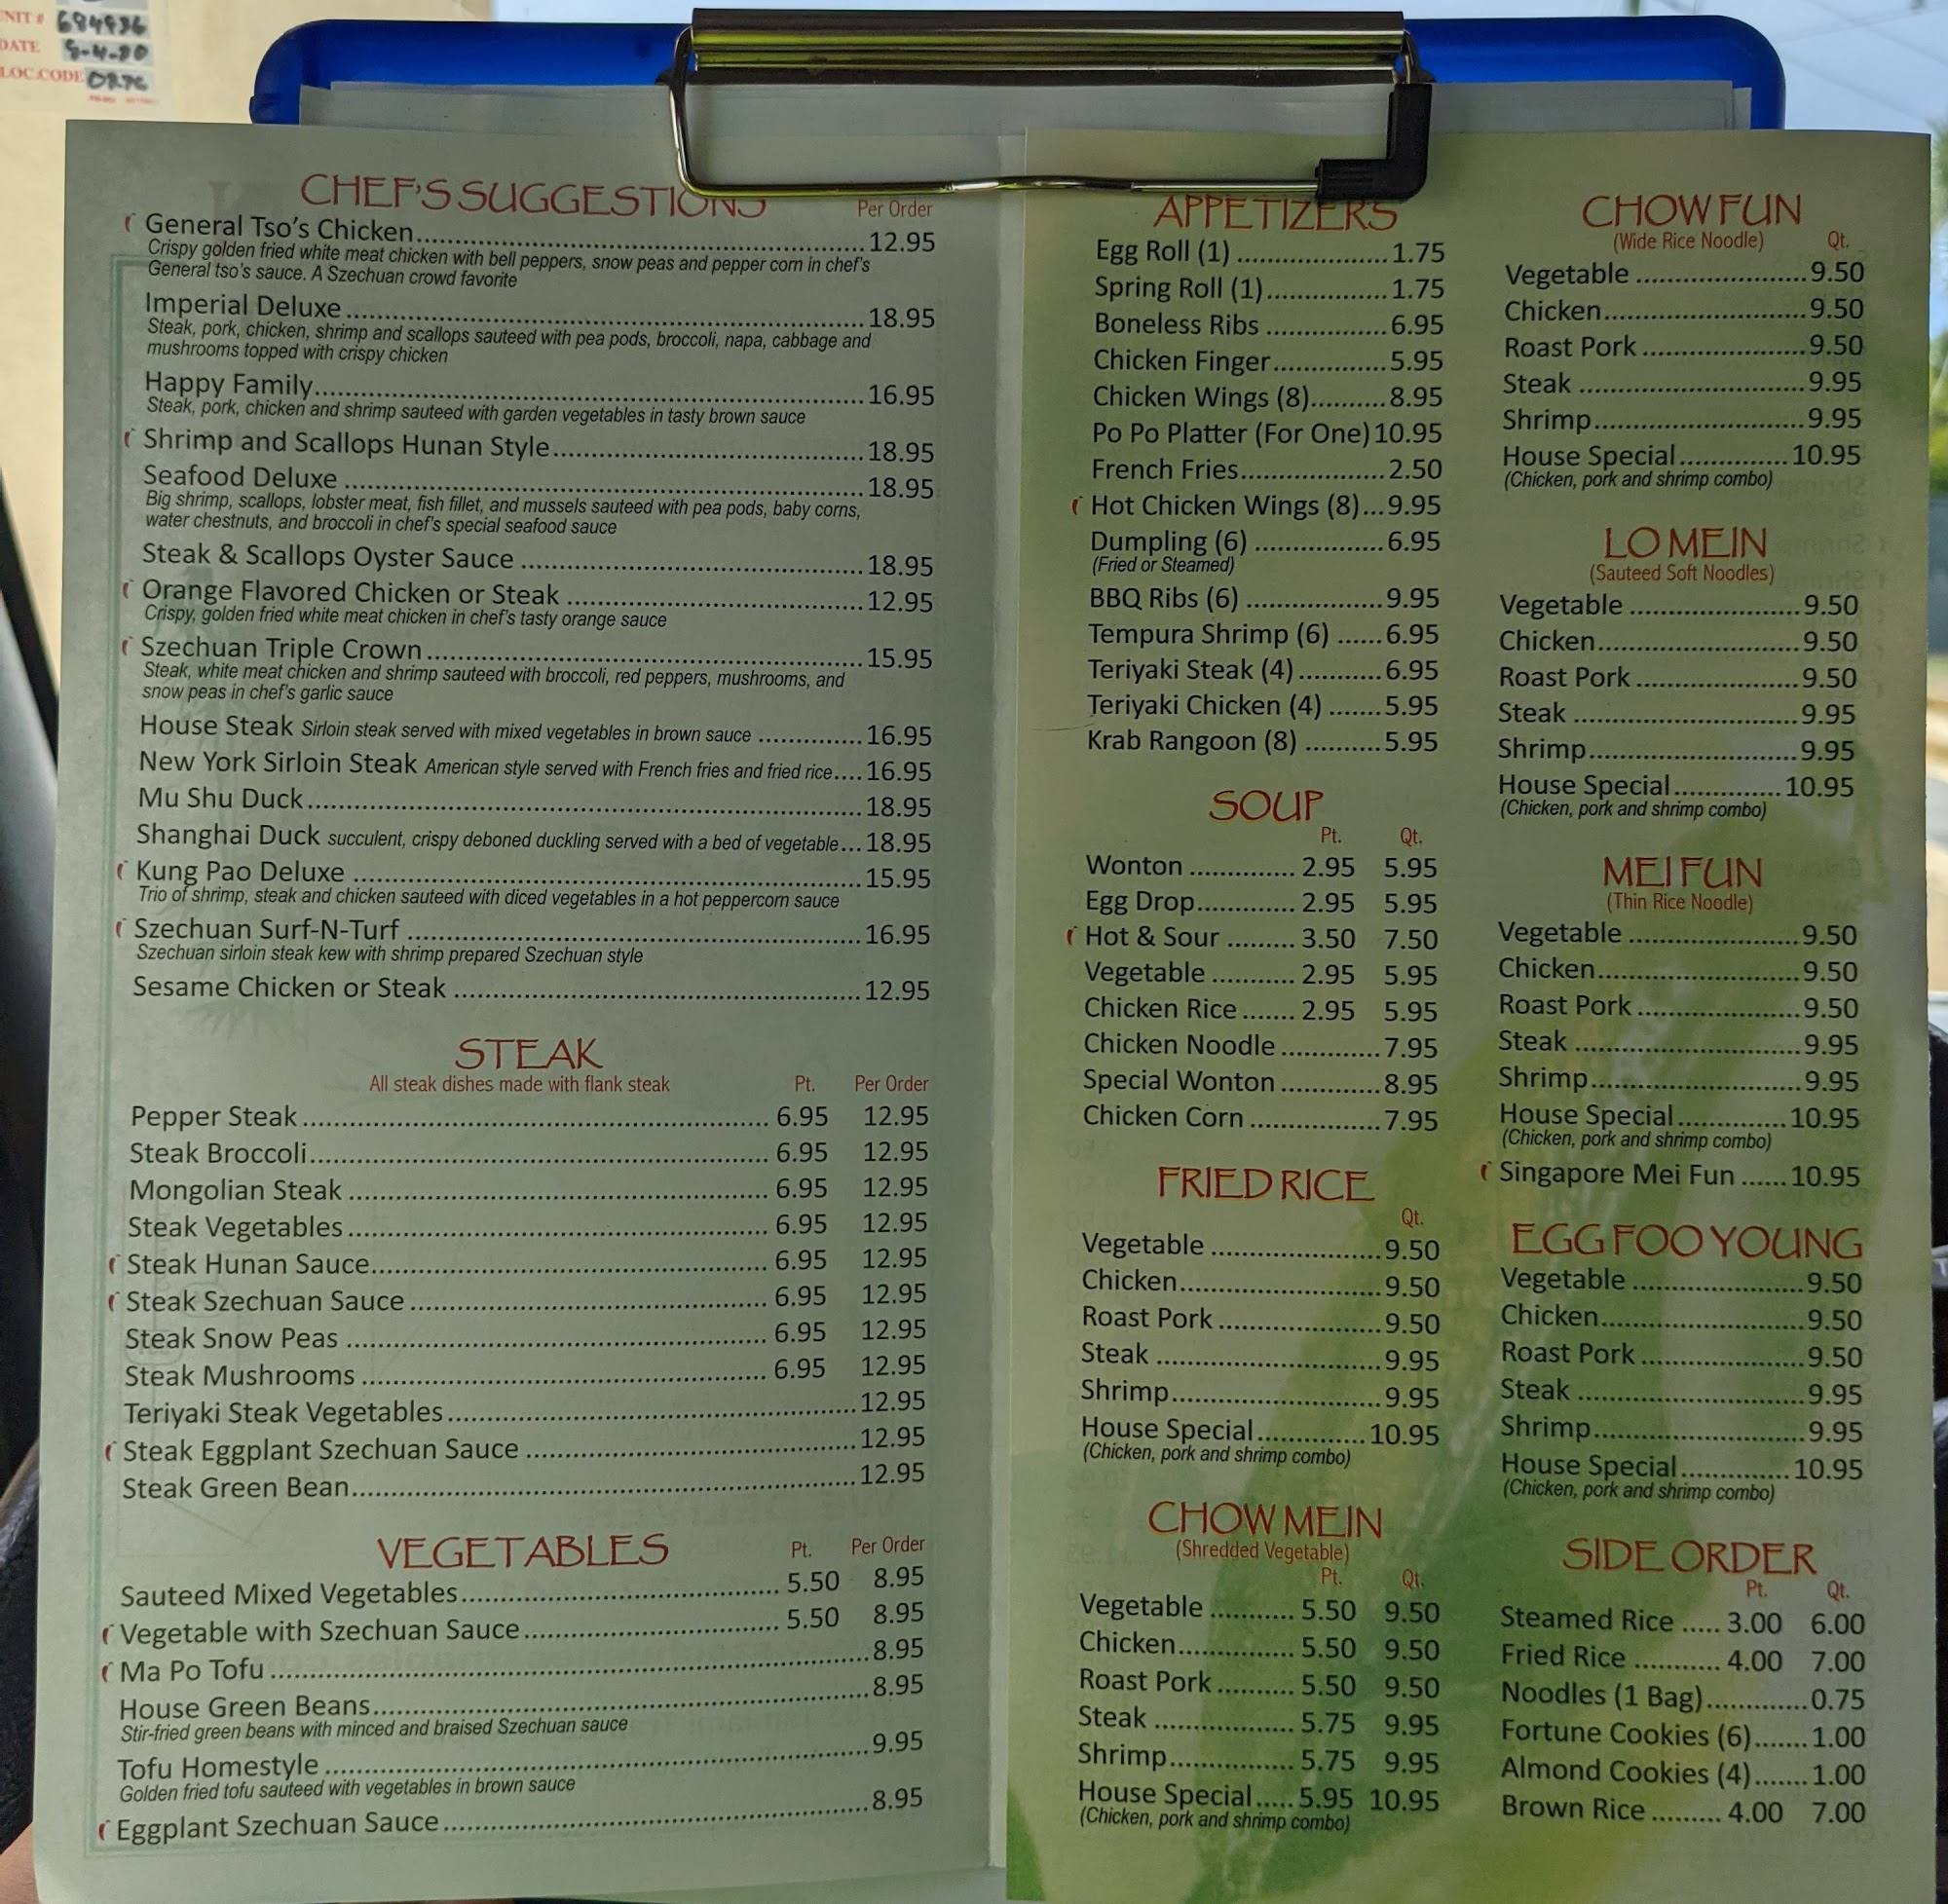 UNIT # 684936
DATE 8-4-80
LOC.CODE
CHEF'S SUGGESTIONS
Per Order
General Tso's Chicken 12.95
Crispy golden fried white meat chicken with bell peppers, snow peas and pepper corn in chef's
General tso's sauce. A Szechuan crowd favorite
Imperial Deluxe 18.95
Steak, pork, chicken, shrimp and scallops sauteed with pea pods, broccoli, napa, cabbage and
mushrooms topped with crispy chicken
Happy Family 16.95
Steak, pork, chicken and shrimp sauteed with garden vegetables in tasty brown sauce
Shrimp and Scallops Hunan Style 18.95
Seafood Deluxe 18.95
Big shrimp, scallops, lobster meat, fish fillet, and mussels sauteed with pea pods, baby corns,
water chestnuts, and broccoli in chef's special seafood sauce
Steak & Scallops Oyster Sauce 18.95
Orange Flavored Chicken or Steak 12.95
Crispy, golden fried white meat chicken in chef's tasty orange sauce
Szechuan Triple Crown 15.95
Steak, white meat chicken and shrimp sauteed with broccoli, red peppers, mushrooms, and
snow peas in chef's garlic sauce
House Steak Sirloin steak served with mixed vegetables in brown sauce 16.95
New York Sirloin Steak American style served with French fries and fried rice 16.95
Mu Shu Duck 18.95
Shanghai Duck succulent, crispy deboned duckling served with a bed of vegetable 18.95
Kung Pao Deluxe 15.95
Trio of shrimp, steak and chicken sauteed with diced vegetables in a hot peppercorn sauce
Szechuan Surf-N-Turf 16.95
Szechuan sirloin steak kew with shrimp prepared Szechuan style
Sesame Chicken or Steak 12.95
STEAK
All steak dishes made with flank steak Pt. Per Order
Pepper Steak 6.95 12.95
Steak Broccoli 6.95 12.95
Mongolian Steak 6.95 12.95
Steak Vegetables 6.95 12.95
Steak Hunan Sauce 6.95 12.95
Steak Szechuan Sauce 6.95 12.95
Steak Snow Peas 6.95 12.95
Steak Mushrooms 6.95 12.95
Teriyaki Steak Vegetables 12.95
Steak Eggplant Szechuan Sauce 12.95
Steak Green Bean 12.95
VEGETABLES Pt. Per Order
Sauteed Mixed Vegetables 5.50 8.95
Vegetable with Szechuan Sauce 5.50 8.95
Ma Po Tofu 8.95
House Green Beans 8.95
Stir-fried green beans with minced and braised Szechuan sauce
Tofu Homestyle 9.95
Golden fried tofu sauteed with vegetables in brown sauce
Eggplant Szechuan Sauce 8.95
APPETIZERS
Egg Roll (1) 1.75
Spring Roll (1) 1.75
Boneless Ribs 6.95
Chicken Finger 5.95
Chicken Wings (8) 8.95
Po Po Platter (For One) 10.95
French Fries 2.50
Hot Chicken Wings (8) 9.95
Dumpling (6) 6.95
(Fried or Steamed)
BBQ Ribs (6) 9.95
Tempura Shrimp (6) 6.95
Teriyaki Steak (4) 6.95
Teriyaki Chicken (4) 5.95
Krab Rangoon (8) 5.95
SOUP
Pt. Qt.
Wonton 2.95 5.95
Egg Drop 2.95 5.95
Hot & Sour 3.50 7.50
Vegetable 2.95 5.95
Chicken Rice 2.95 5.95
Chicken Noodle 7.95
Special Wonton 8.95
Chicken Corn 7.95
FRIED RICE
Qt.
Vegetable 9.50
Chicken 9.50
Roast Pork 9.50
Steak 9.95
Shrimp 9.95
House Special 10.95
(Chicken, pork and shrimp combo)
CHOW MEIN
(Shredded Vegetable)
Pt. Qt.
Vegetable 5.50 9.50
Chicken 5.50 9.50
Roast Pork 5.50 9.50
Steak 5.75 9.95
Shrimp 5.75 9.95
House Special 5.95 10.95
(Chicken, pork and shrimp combo)
CHOW FUN
(Wide Rice Noodle) Qt.
Vegetable 9.50
Chicken 9.50
Roast Pork 9.50
Steak 9.95
Shrimp 9.95
House Special 10.95
(Chicken, pork and shrimp combo)
LO MEIN
(Sauteed Soft Noodles)
Vegetable 9.50
Chicken 9.50
Roast Pork 9.50
Steak 9.95
Shrimp 9.95
House Special 10.95
(Chicken, pork and shrimp combo)
MEI FUN
(Thin Rice Noodle)
Vegetable 9.50
Chicken 9.50
Roast Pork 9.50
Steak 9.95
Shrimp 9.95
House Special 10.95
(Chicken, pork and shrimp combo)
Singapore Mei Fun 10.95
EGG FOO YOUNG
Vegetable 9.50
Chicken 9.50
Roast Pork 9.50
Steak 9.95
Shrimp 9.95
House Special 10.95
(Chicken, pork and shrimp combo)
SIDE ORDER
Pt. Qt.
Steamed Rice 3.00 6.00
Fried Rice 4.00 7.00
Noodles (1 Bag) 0.75
Fortune Cookies (6) 1.00
Almond Cookies (4) 1.00
Brown Rice 4.00 7.00